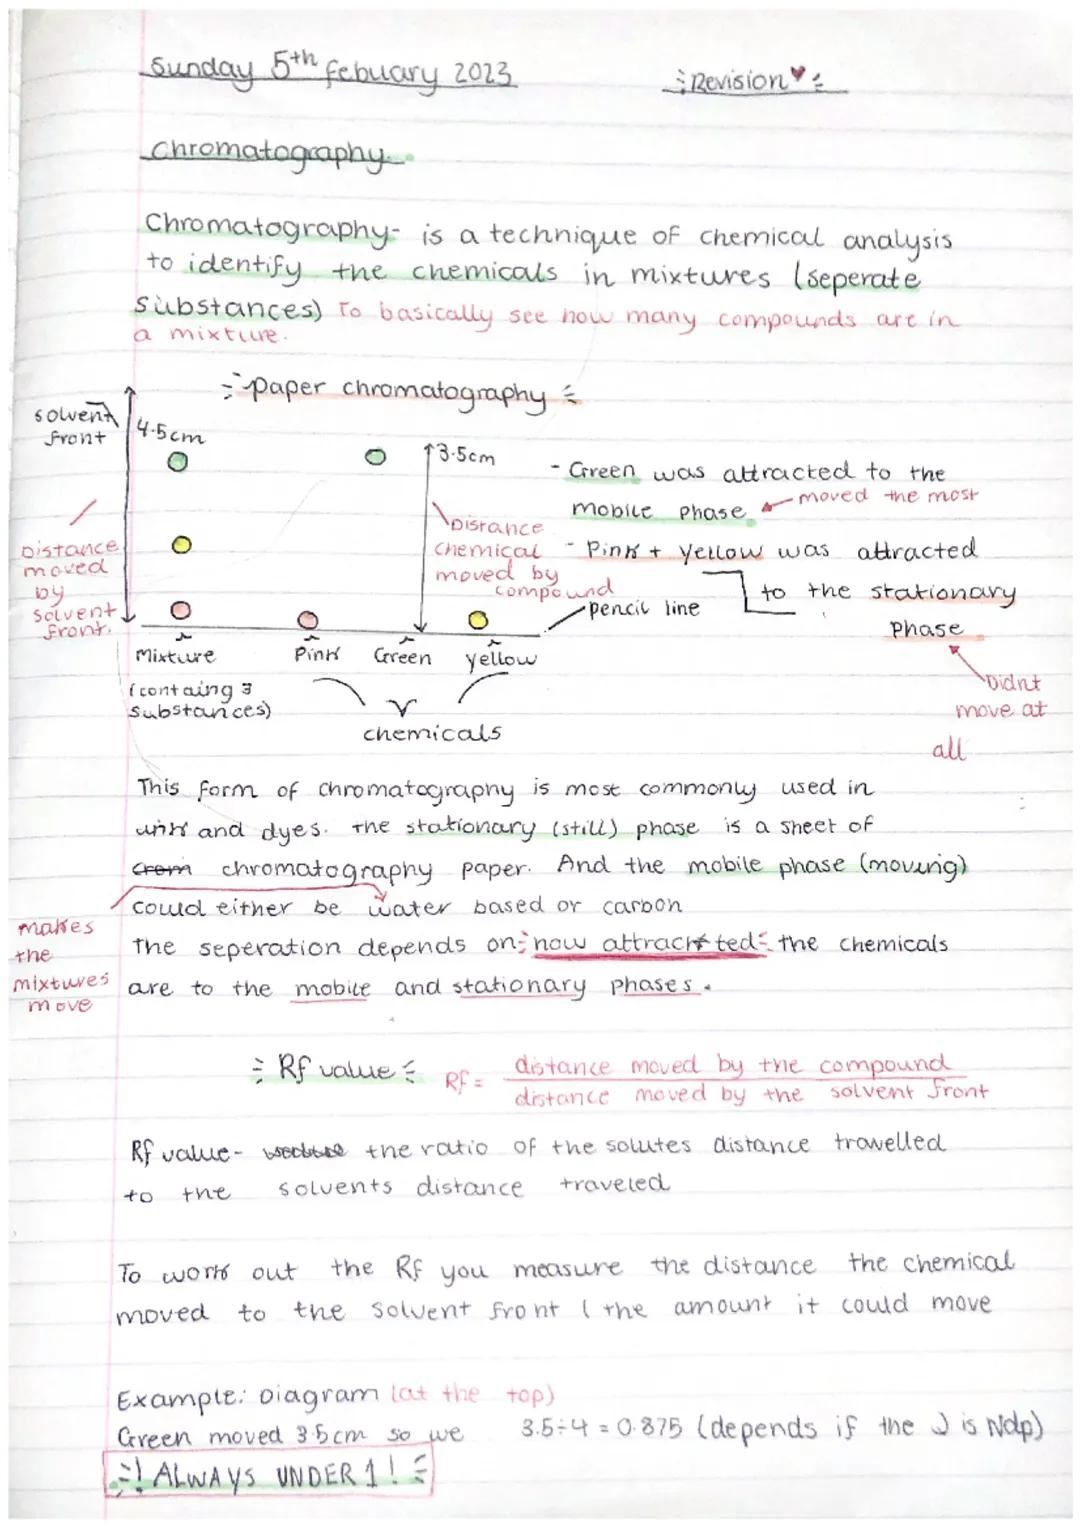 Sunday 5th febuary 2023
Revision
Chromatography.
Chromatography- is a technique of chemical analysis
to identify the chemicals in mixtures (seperate
Substances) To basically see how many compounds are in
a mixture.
paper chromatography
solvent
front
4.5cm
3.5cm
- Green was attracted to the
mobile phase
moved the most
Distance
moved
by
solvent
front.
Distance
chemical
moved by
compound
- Pink + yellow was attracted
to the stationary
phase
pencil line
Didnt
move at
all
Mixture
(containg 3
substances)
Pink
Green
yellow
chemicals
This form of chromatography is most commonly used in
and dyes. The stationary (still) phase is a sheet of
crom chromatography paper. And the mobile phase (moving)
could either be water based or carbon
makes
the
mixtures
move
The seperation depends on how attracted the chemicals
are to the mobile and stationary phases.
Rf value
Rf = distance moved by the compound
distance moved by the solvent front
Rf value- the ratio of the solutes distance travelled
to the solvents distance traveled
To work out the Rf you measure the distance the chemical
moved to the solvent front (the amount it could move
Example: Diagram (at the top)
Green moved 3.5cm so we 3.5÷4 = 0.875 (depends if the Q is Ndp)
! ALWAYS UNDER 1!